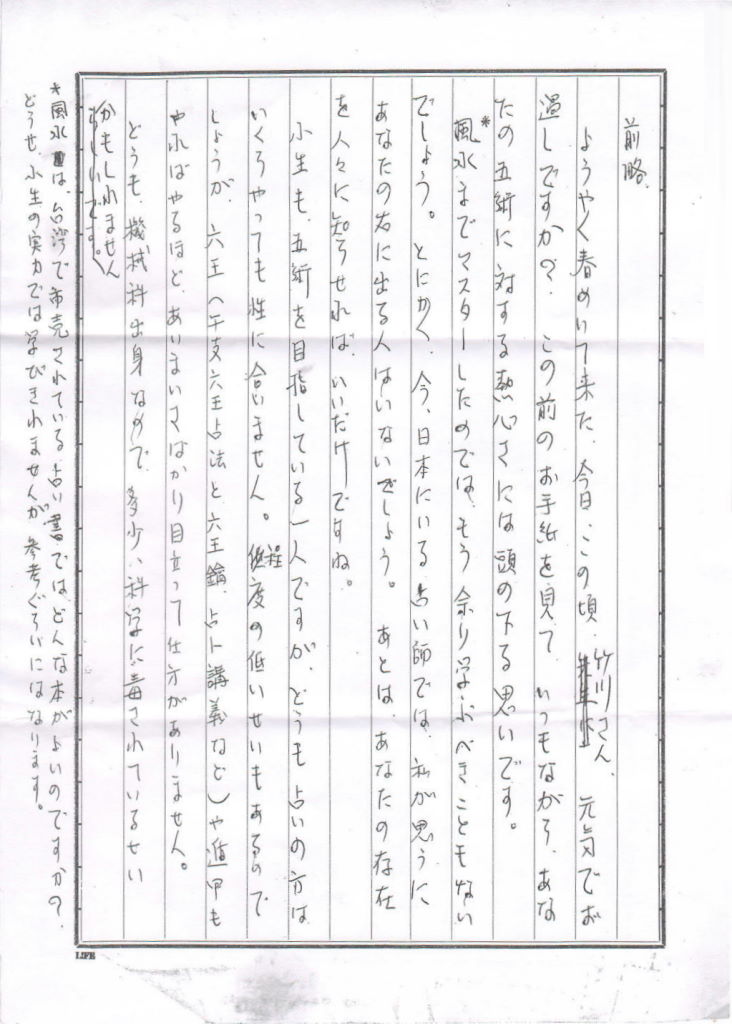 前略、
ようやく春めいて来た、今日、この頃、竹川さん、元気でお
過しですか？ この前のお手紙を見て、いつもながら、あな
たの五術に対する熱心さには頭の下る思いです。
*風水までマスターしたのでは、もう余り学ぶべきこともない
でしょう。とにかく、今、日本にいる占い師では、私が思うに
あなたの右に出る人はいないでしょう。あとは、あなたの存在
を人々に知らせれば、いいだけですね。
小生も、五術を目指している一人ですが、どうも占いの方は
いくらやっても性に合いません。程度の低いせいもあるので
しょうが、六壬(干支六壬占法と六壬鑰、占卜講義など)や遁甲も
やればやるほど、あいまいさばかり目立って仕方がありません。
どうも、機械科出身なので、多少、科学に毒されているせい
かもしれません
*風水は、台湾で市売されている占い書では、どんな本がよいのですか？
どうせ、小生の実力では学びきれませんが、参考ぐらいにはなります。
LIFE